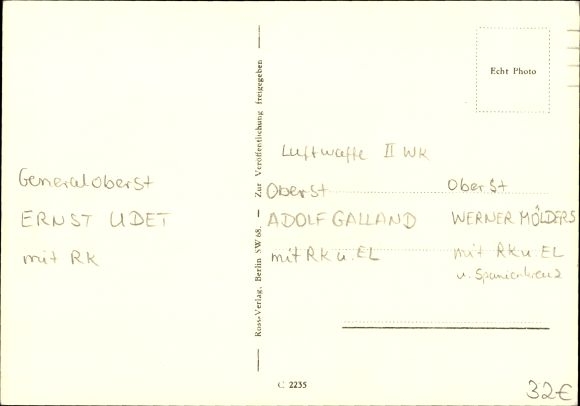 Generaloberst
ERNST UDET
mit RK
Ross-Verlag, Berlin SW 68. — Zur Veröffentlichung freigegeben
Echt Photo
Luftwaffe II WK
Oberst
ADOLF GALLAND
mit RK u. EL
Oberst
WERNER MÖLDERS
mit RK u. EL
u. Spanienkreuz
C 2235
32€